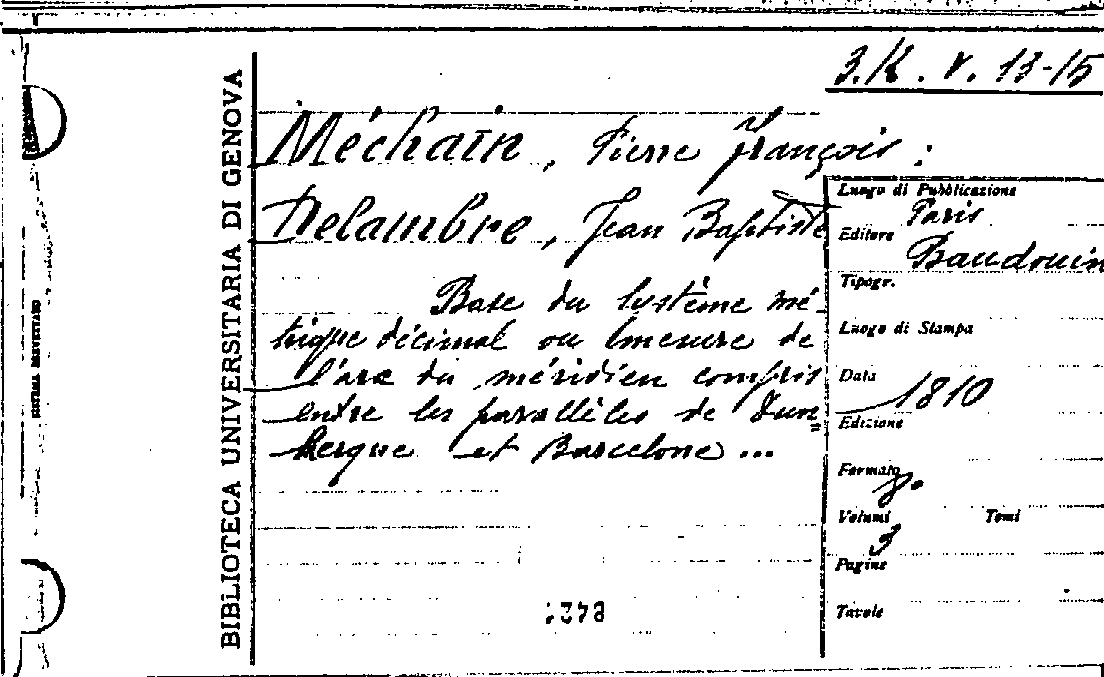 3.K. V. 13-15
BIBLIOTECA UNIVERSITARIA DI GENOVA
Méchain, Pierre François :
Delambre, Jean Baptiste
Base du Système mé-
trique décimal ou mesure de
l'arc du méridien compris
entre les parallèles de Dun=
kerque et Barcelone ...
Luogo di Pubblicazione
Paris
Editore
Baudouin
Tipogr.
Luogo di Stampa
Data
1810
Edizione
Formato
8.º
Volumi
3
Tomi
Pagine
Tavole